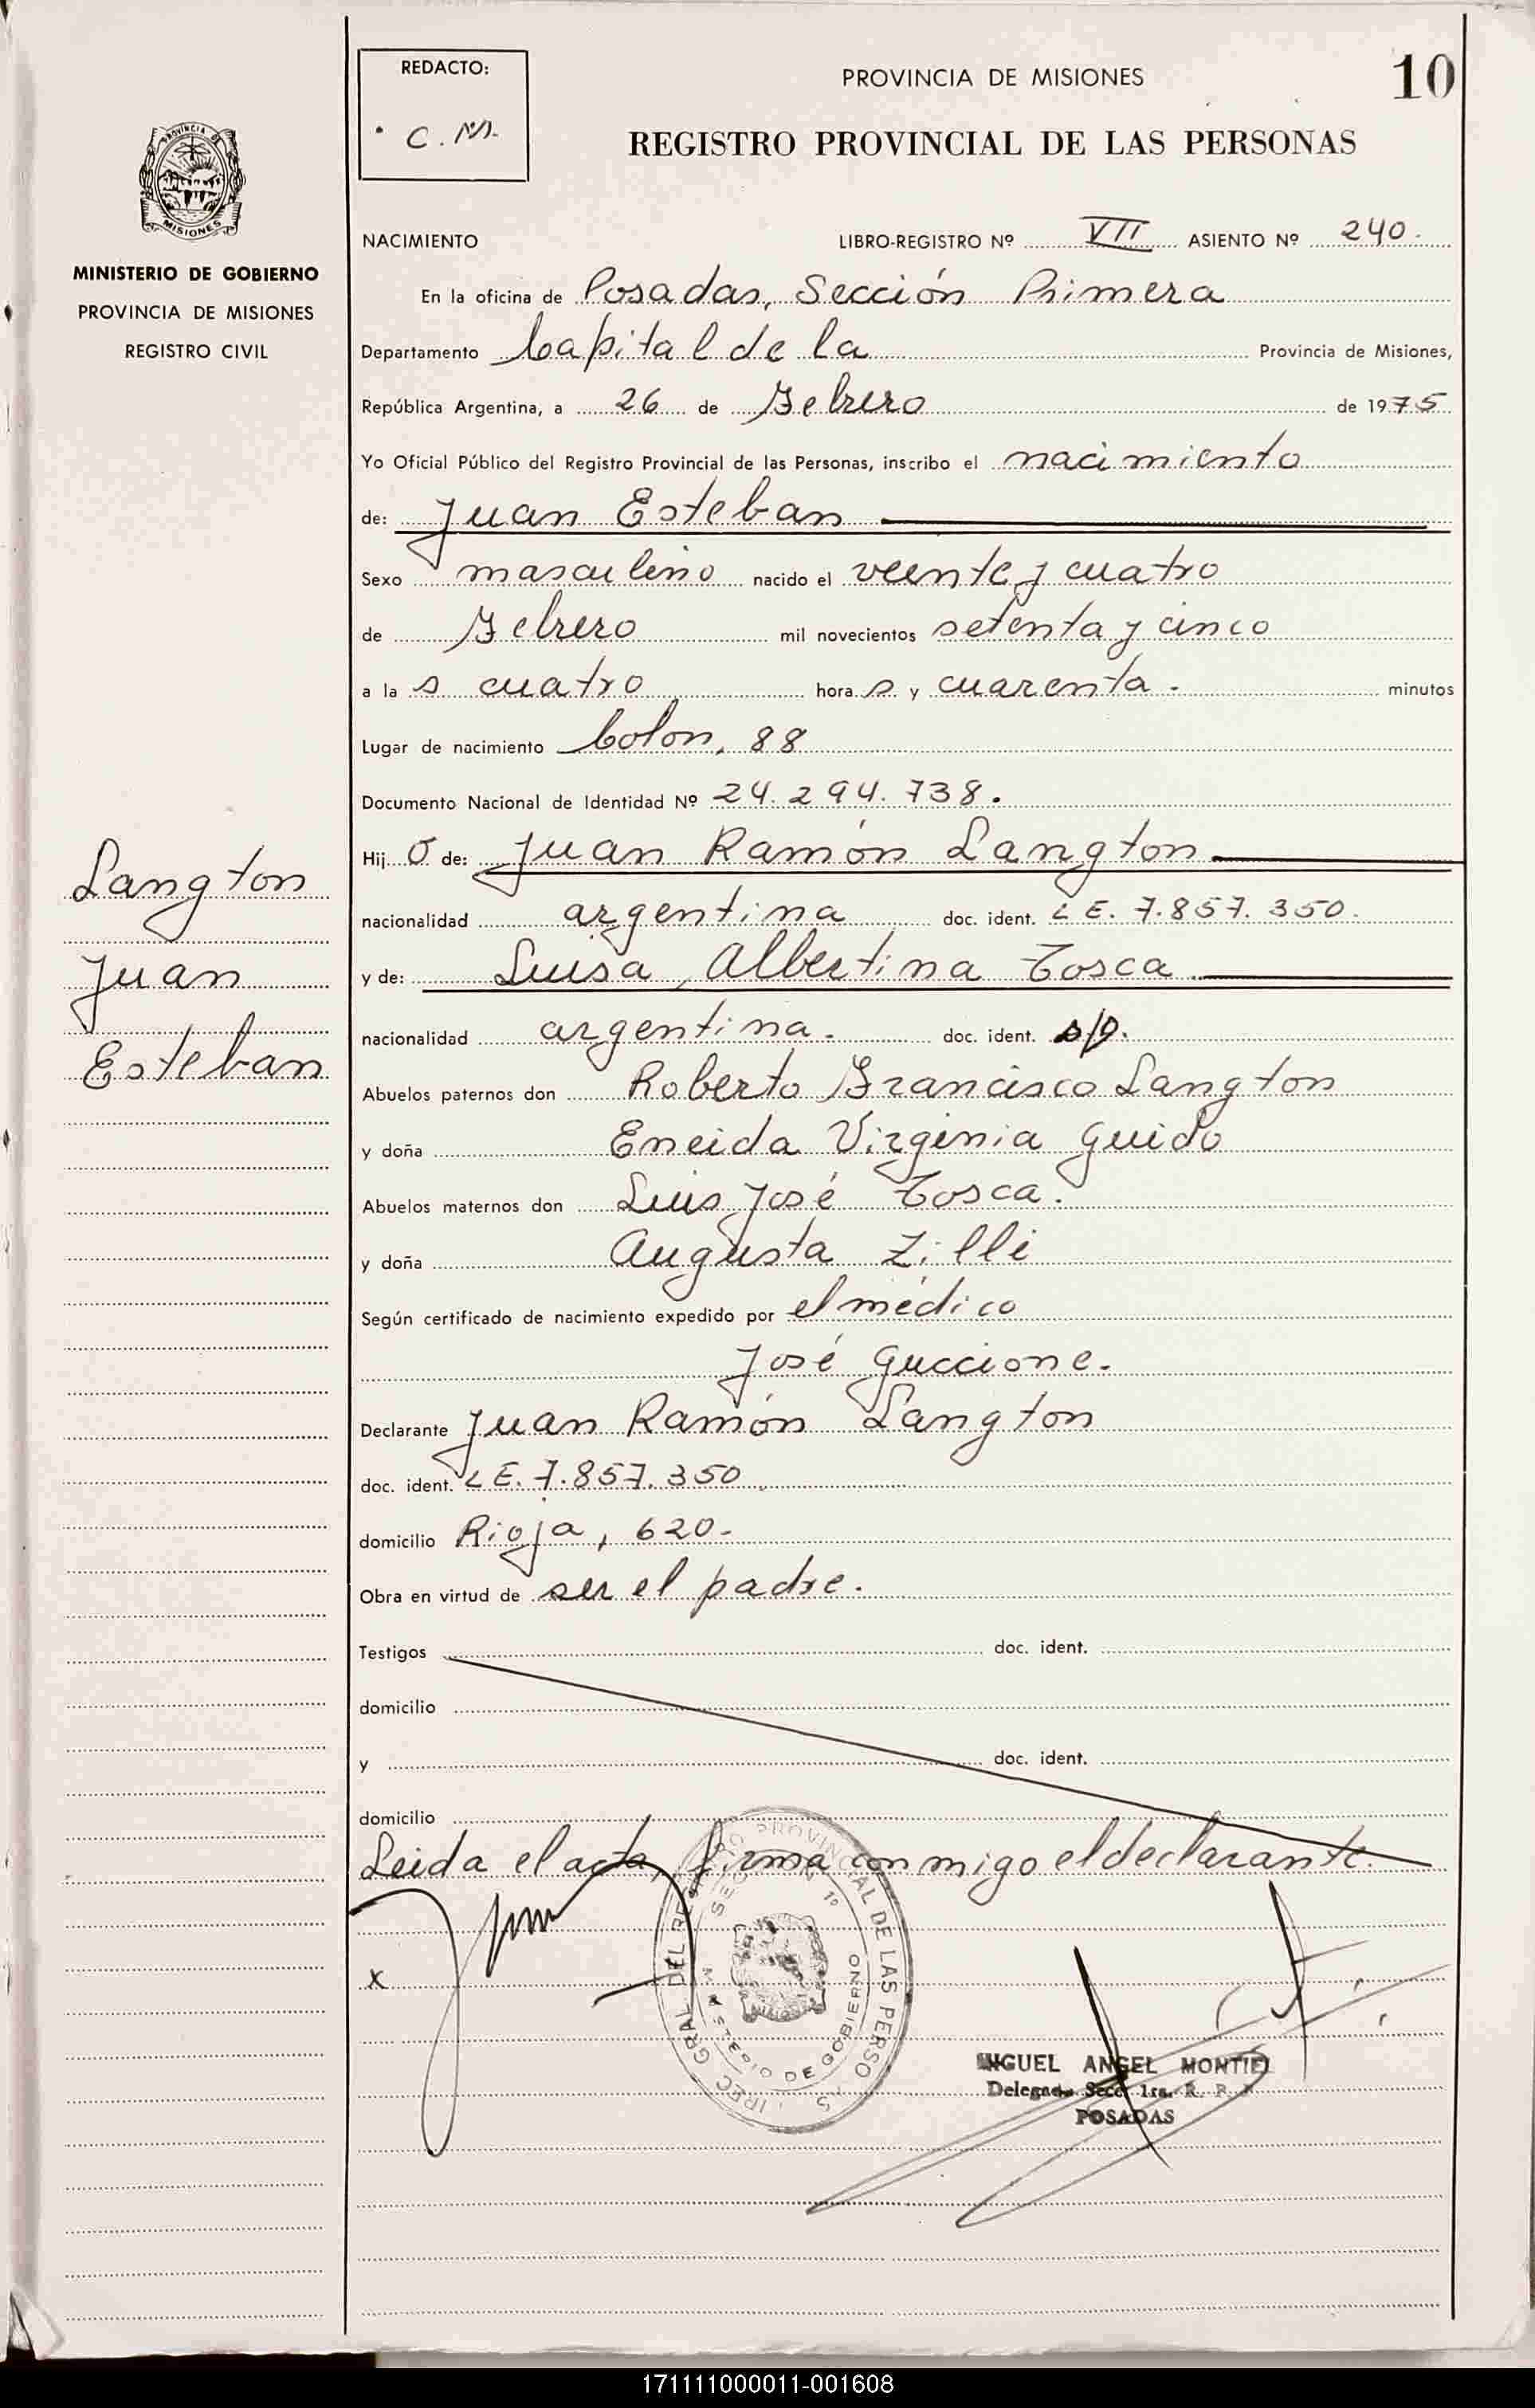 REDACTO:
C. M.
PROVINCIA DE MISIONES
10
REGISTRO PROVINCIAL DE LAS PERSONAS
PROVINCIA DE
MISIONES
MINISTERIO DE GOBIERNO
PROVINCIA DE MISIONES
REGISTRO CIVIL
NACIMIENTO LIBRO-REGISTRO Nº VII ASIENTO Nº 240.
En la oficina de Posadas, Sección Primera
Departamento Capital de la Provincia de Misiones,
República Argentina, a 26 de Febrero de 1975
Yo Oficial Público del Registro Provincial de las Personas, inscribo el nacimiento
de: Juan Esteban
Sexo masculino nacido el veinte y cuatro
de Febrero mil novecientos setenta y cinco
a la s cuatro hora s y cuarenta. minutos
Lugar de nacimiento Colon, 88
Documento Nacional de Identidad Nº 24.294.738.
Hij o de: Juan Ramón Langton
nacionalidad argentina doc. ident. L E. 7.857.350.
y de: Luisa Albertina Tosca
nacionalidad argentina. doc. ident. s/p.
Abuelos paternos don Roberto Francisco Langton
y doña Eneida Virginia Guido
Abuelos maternos don Luis José Tosca.
y doña Augusta Zilli
Según certificado de nacimiento expedido por el médico
José Guccione.
Declarante Juan Ramón Langton
doc. ident. L E. 7.857.350
domicilio Rioja, 620-
Obra en virtud de ser el padre.
Testigos doc. ident.
domicilio
y doc. ident.
domicilio
Leida el acta, firma conmigo el declarante.
x
Langton
Juan
Esteban
MINISTERIO DE GOBIERNO
MIGUEL ANGEL MONTIEL
Delegado Secc. 1ra. R. P. P.
POSADAS
171111000011-001608